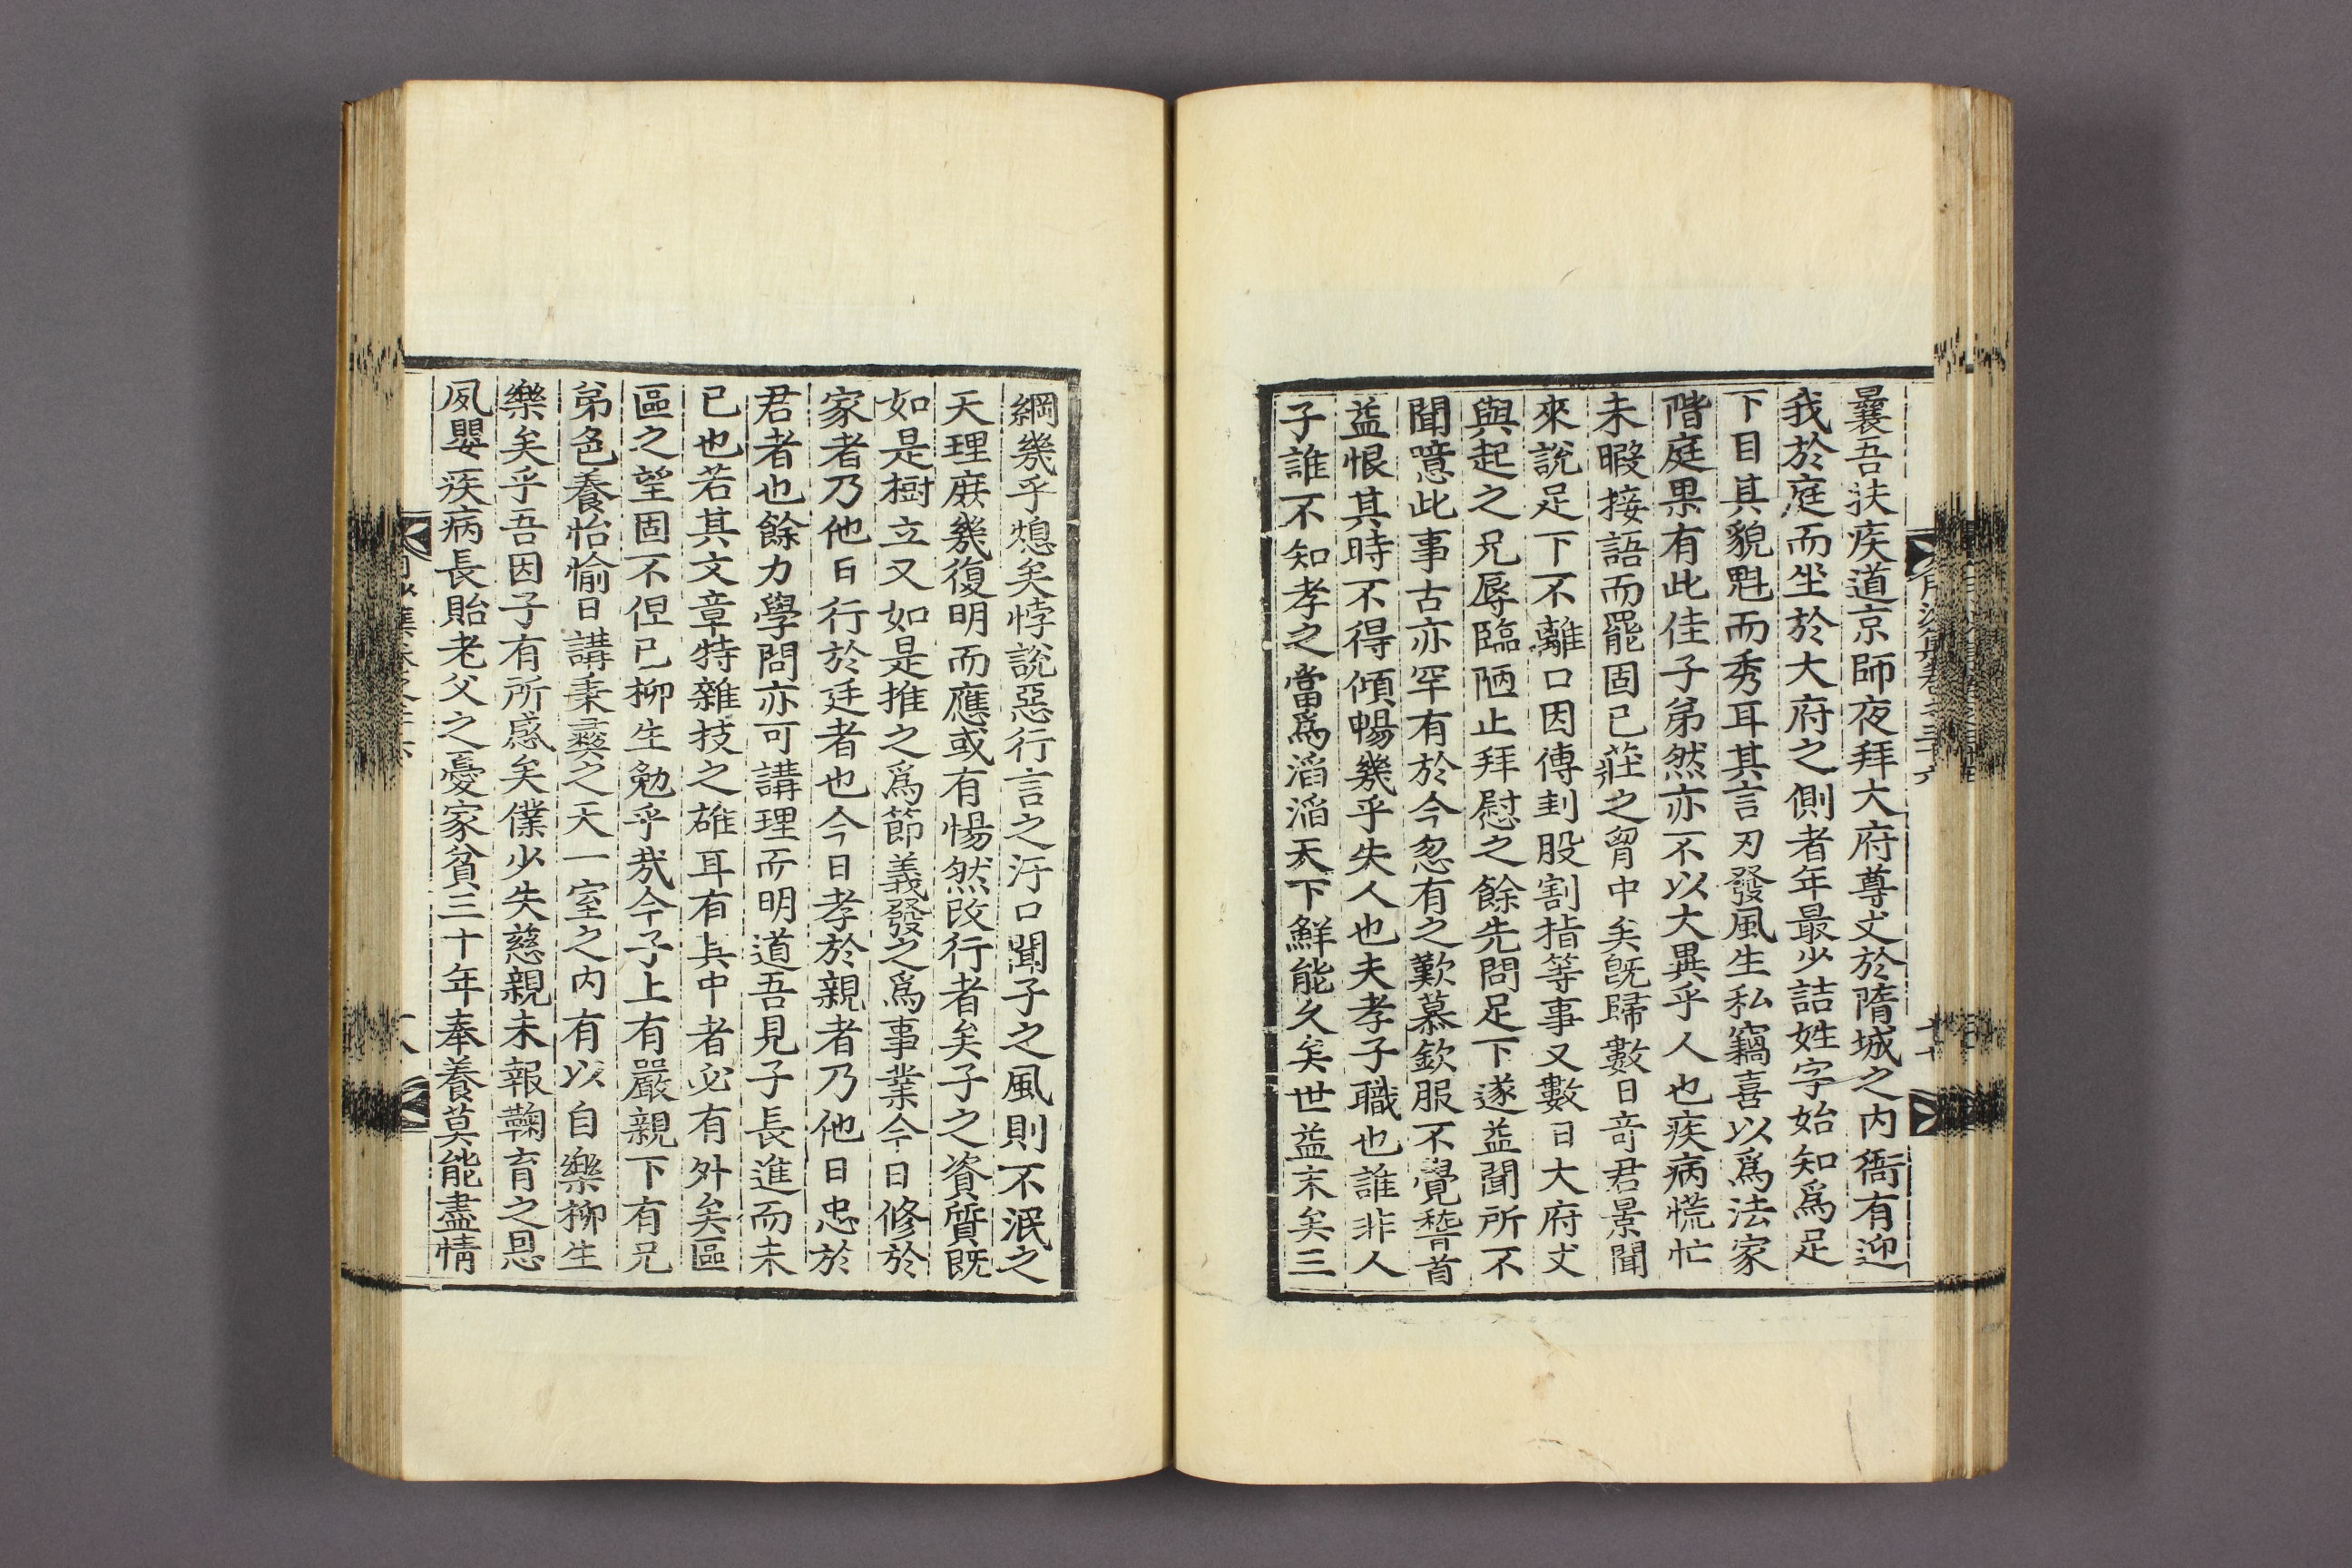 曩吾扶疾道京師夜拜大府尊丈於隋城之內衙有迎
我於庭而坐於大府之側者年最少詰姓字始知爲足
下目其貌魁而秀耳其言刃發風生私竊喜以爲法家
階庭果有此佳子弟然亦不以大異乎人也疾病慌忙
未暇接語而罷固已莊之胷中矣旣歸數日竒君景聞
來說足下不離口因傳刲股割指等事又數日大府丈
與起之兄辱臨陋止拜慰之餘先問足下遂益聞所不
聞噫此事古亦罕有於今忽有之歎慕欽服不覺嵆首
益恨其時不得傾暢幾乎失人也夫孝子職也誰非人
子誰不知孝之當爲滔滔天下鮮能久矣世益末矣三
綱幾乎熄矣悖說惡行言之汚口聞子之風則不泯之
天理庶幾復明而應或有惕然改行者矣子之資質旣
如是樹立又如是推之爲節義發之爲事業今日修於
家者乃他日行於廷者也今日孝於親者乃他日忠於
君者也餘力學問亦可講理而明道吾見子長進而未
已也若其文章特雜技之雄耳有其中者必有外矣區
區之望固不但已柳生勉乎㢤今子上有嚴親下有兄
弟色養怡愉日講秉彝之天一室之內有以自樂柳生
樂矣乎吾因子有所感矣僕少失慈親未報鞠育之恩
夙嬰疾病長貽老父之憂家貧三十年奉養莫能盡情